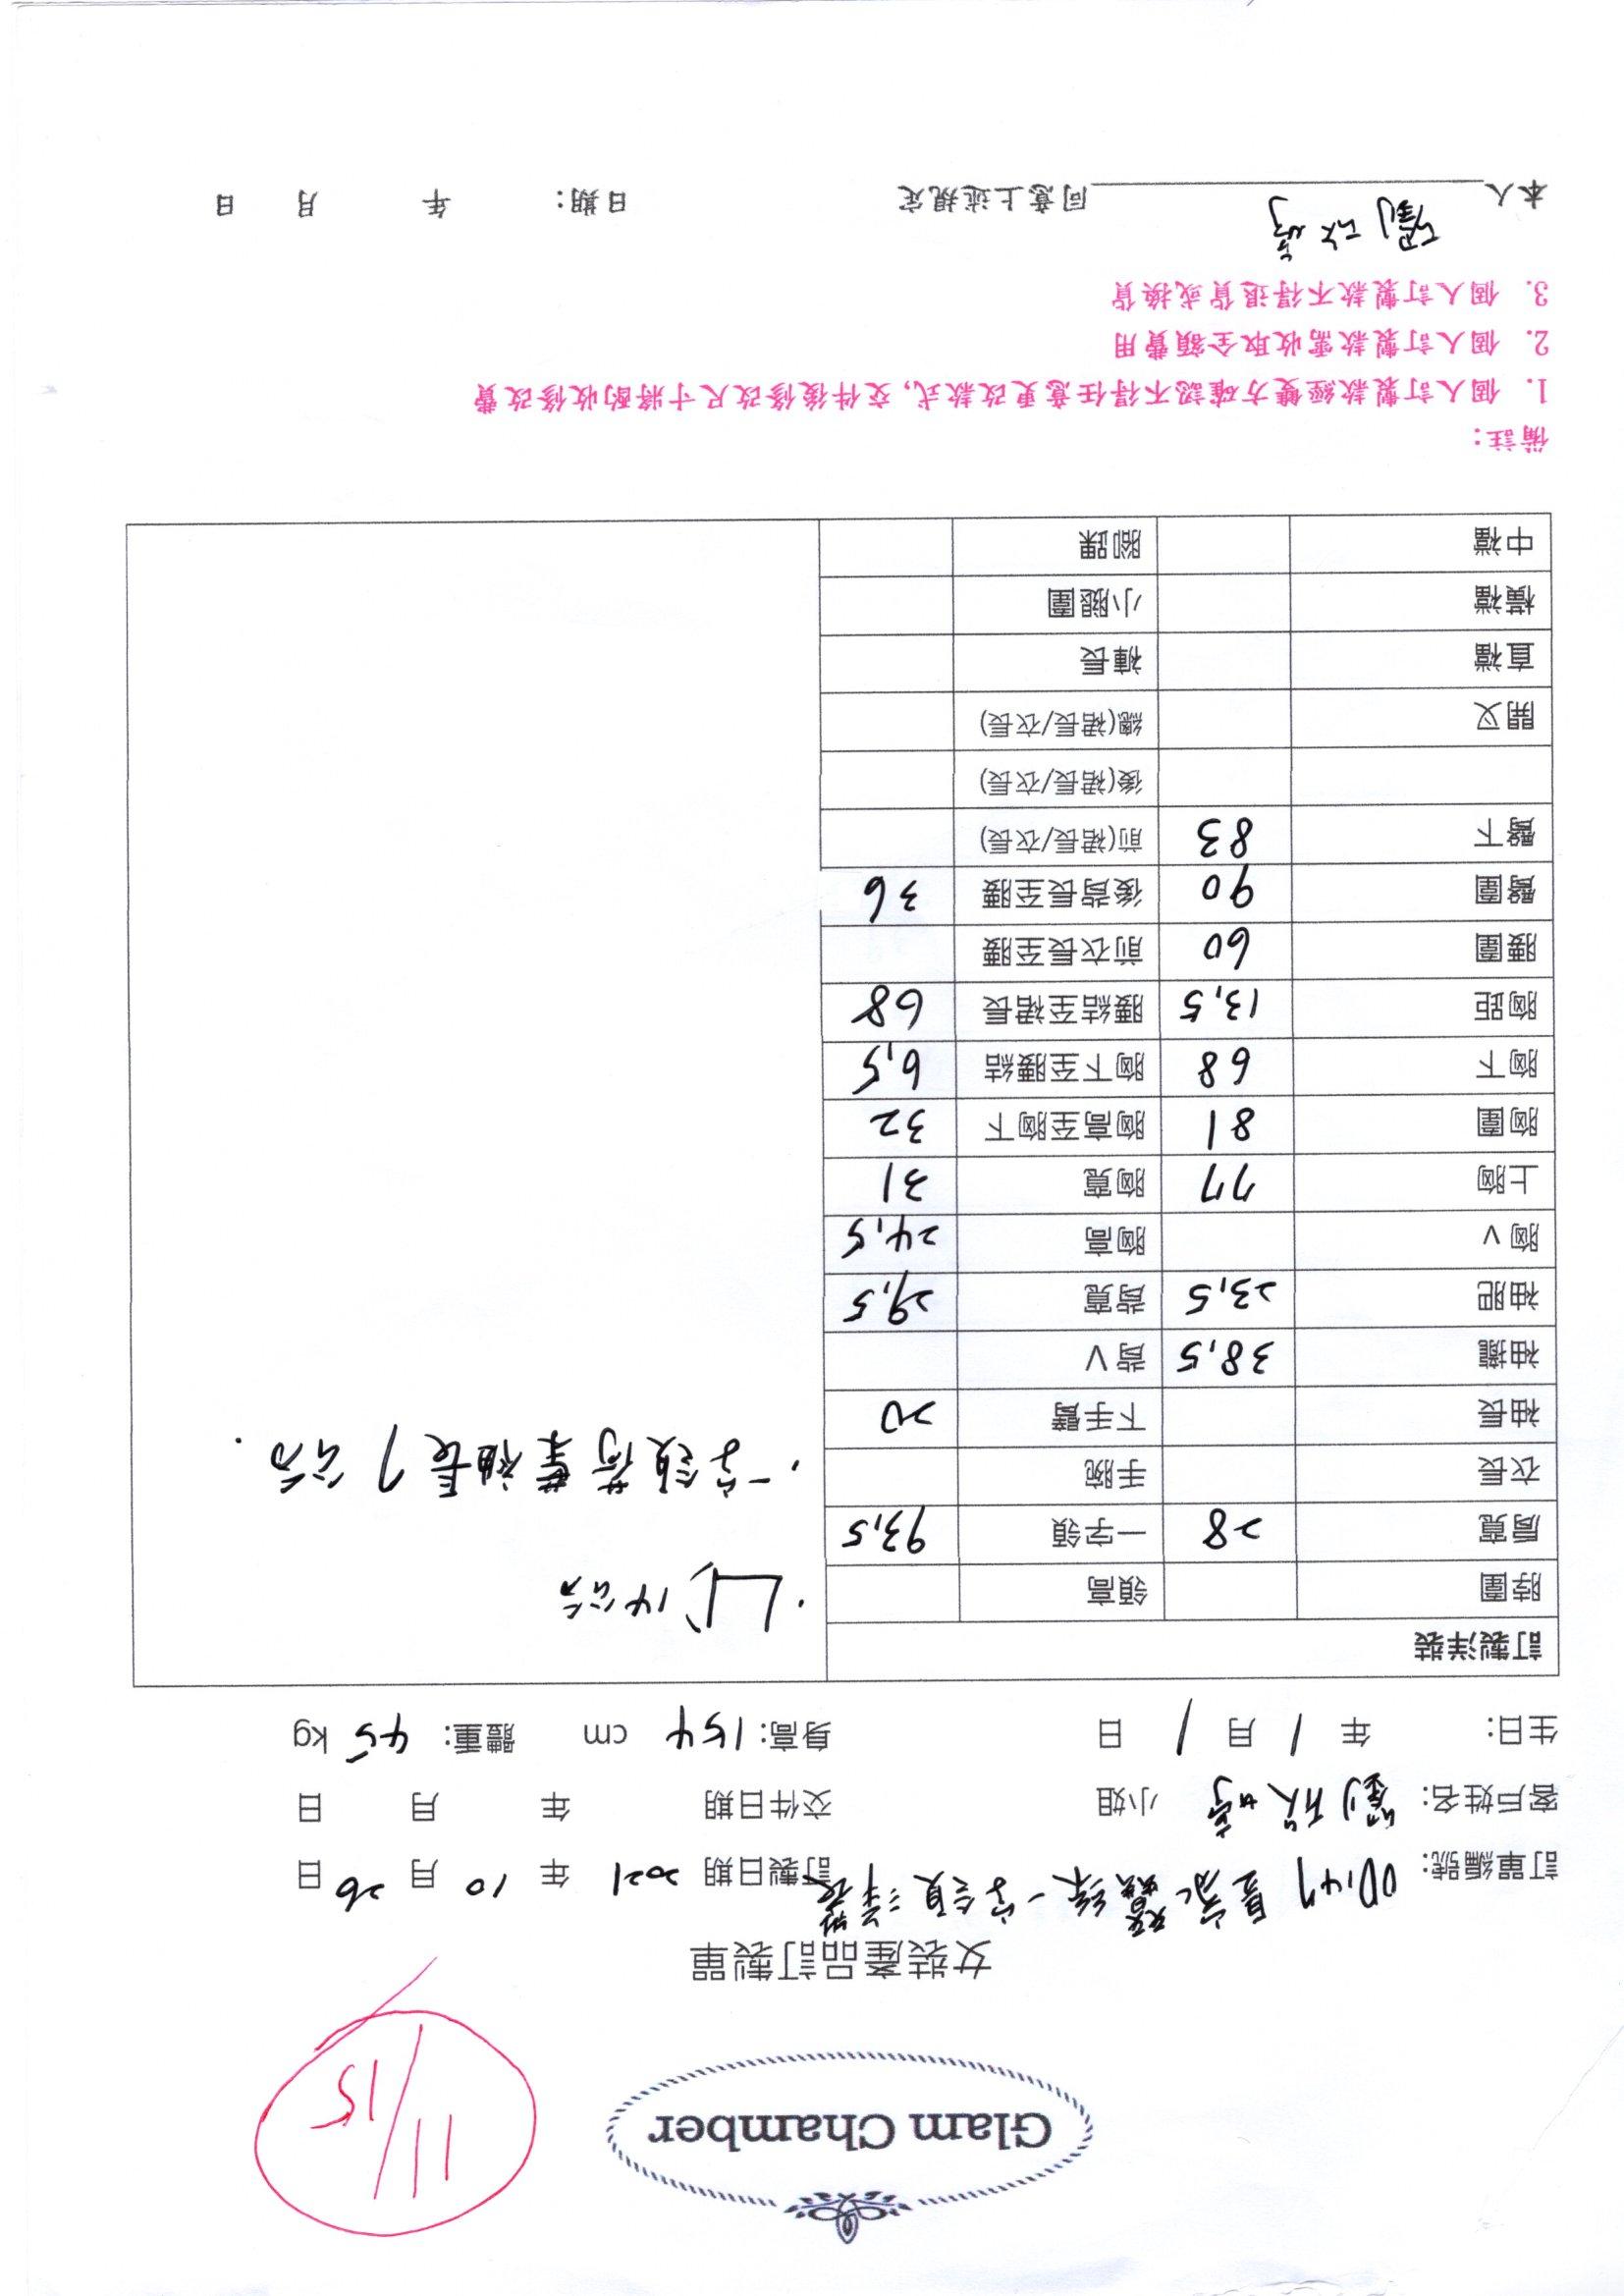 Glam Chamber
11/15
女裝產品訂製單
訂單編號: 一字領洋裝 訂製日期 2021 年 10 月 26 日
客戶姓名: 劉 小姐 交件日期 年 月 日
生日: 年 1 月 1 日 身高: 154 cm 體重: 45 kg
訂製洋裝
脖圍 領高
肩寬 28 一字領 93,5
衣長 手腕
袖長 下手臂 20
袖攏 38,5 背V
袖肥 23,5 背寬 29,5
胸V 胸高 24,5
上胸 77 胸寬 31
胸圍 81 胸高至胸下 32
胸下 68 胸下至腰結 6,5
胸距 13,5 腰結至裙長 68
腰圍 60 前衣長至腰
臀圍 90 後背長至腰 36
臀下 83 前(裙長/衣長)
後(裙長/衣長)
開叉 總(裙長/衣長)
直襠 褲長
橫襠 小腿圍
中襠 腳踝
14公分
一字領荷葉袖長7公分.
備註:
1. 個人訂製款經雙方確認不得任意更改款式, 交件後修改尺寸將酌收修改費
2. 個人訂製款需收取全額費用
3. 個人訂製款不得退貨或換貨
本人 劉 同意上述規定 日期: 年 月 日